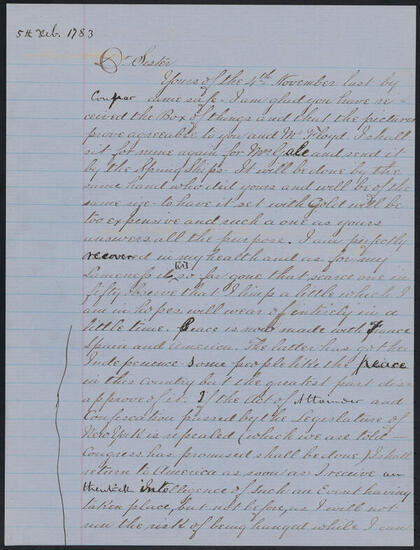 5th Feb. 1783
Dr. Sister
Yours of the 4th November last by
Coupar came safe. I am glad you have re-
ceived the Box of things and that the pictures
prove agreeable to you and Mr Floyd I shall
sit for mine again for Mrs Gale and send it
by the Spring Ships. It will be done by the
same hand who did yours and will be of the
same size - to have it set with Gold will be
too expensive and such a one as yours
answers all the purpose. I am perfectly
recovered in my health and as for my
Lameness it is so far gone that scarce one in
fifty observe that I limp a little which I
am in hopes will wear of entirely in a
little time. Peace is now made with France
Spain and America. The latter has got her
Independence Some people like the peace
in this country but the greatest part dis
approve of it. If the Act of Attainder and
Confiscation passed by the Legislature of
New York is repealed (which we are told
Congress has promised shall be done) I shall
return to America as soon as I receive au
thentick Intelligence of such an Event having
taken place, but not before, as I will not
run the risk of being hanged while I can